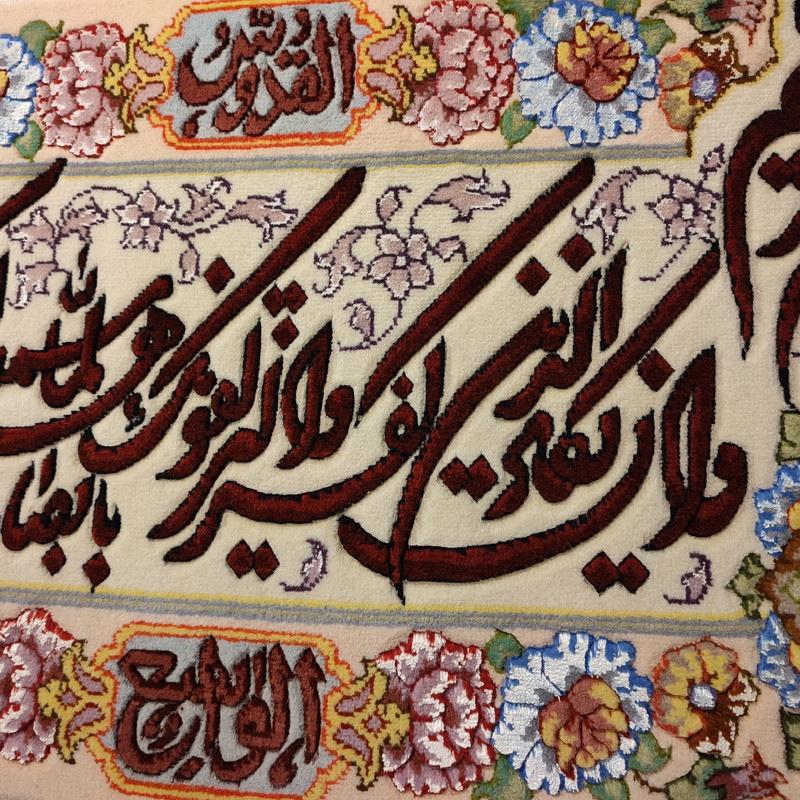 القدوس
وإن يكاد الذين كفروا ليزلقونك بأبصارهم لما سمعوا
الواسع